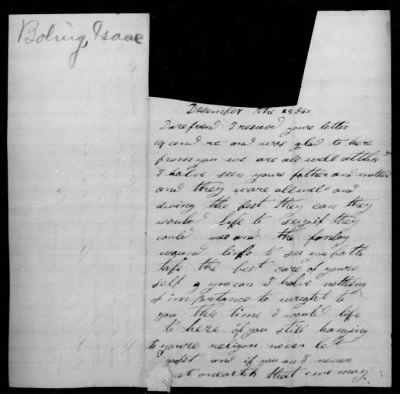 Boling, Isaac
December the 28
Dare frend I reseived youre letter
and was glad to here
from you we are all well at this
I have seen youre father and mother
and they ware all well and
doing the best they can they
would life to se you if they
could me and the famley
would life to see you both
take the best care of youre
self you can I have nothing
of importance to wright to
you this time I would life
to here of you still hanging
to youre religon never let
and if you and I never
meet on earth that we may